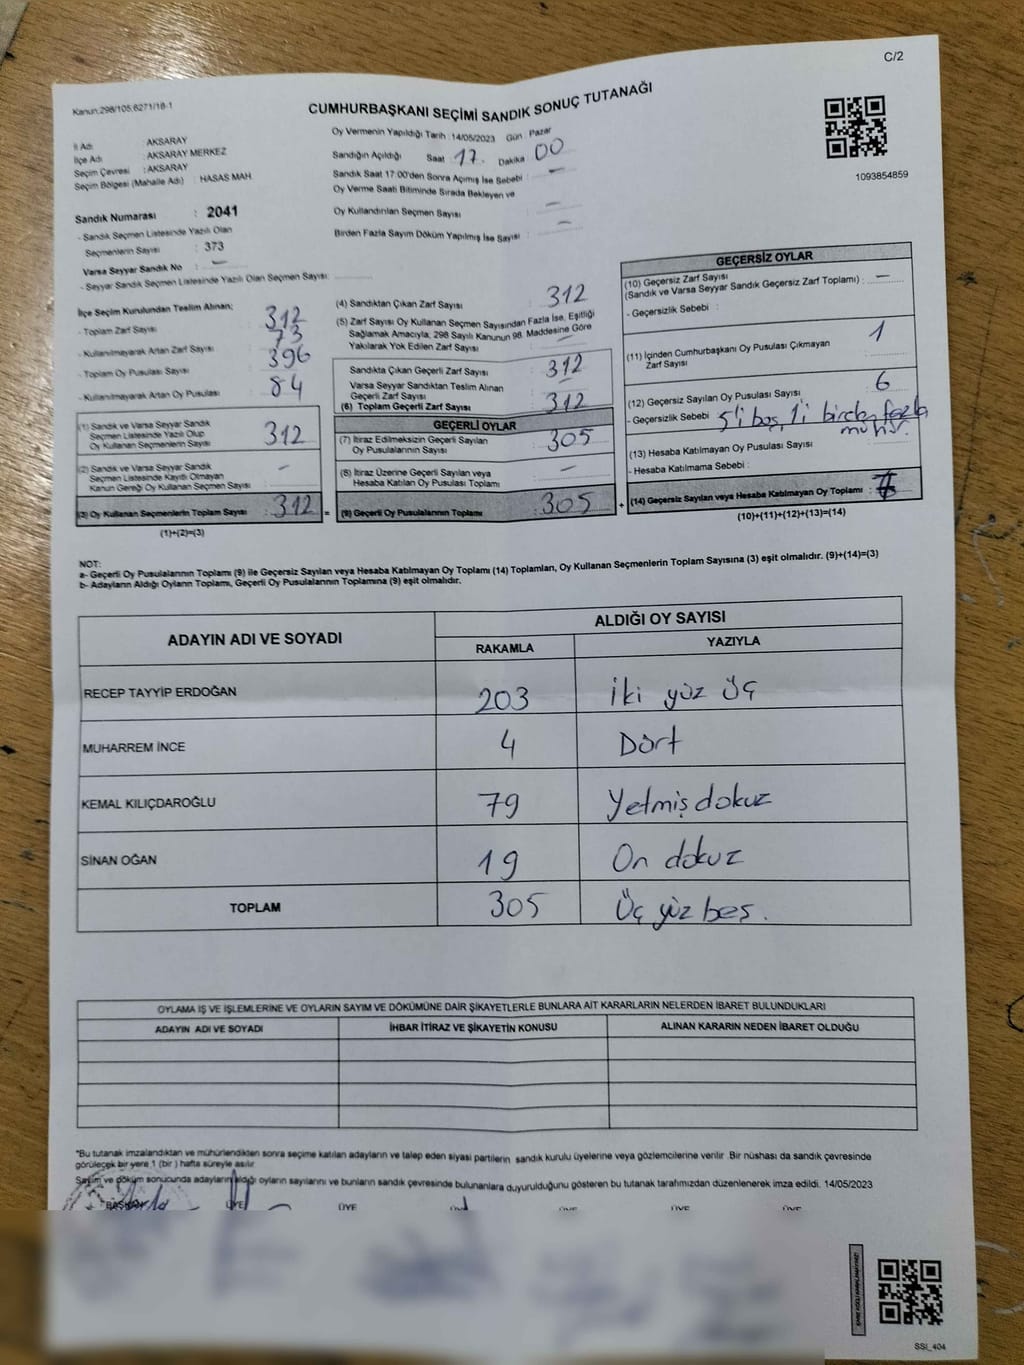 C/2
Kanun:298/105,6271/18-1
CUMHURBAŞKANI SEÇİMİ SANDIK SONUÇ TUTANAĞI
1093854859
İl Adı : AKSARAY
İlçe Adı : AKSARAY MERKEZ
Seçim Çevresi : AKSARAY
Seçim Bölgesi (Mahalle Adı) : HASAS MAH.
Sandık Numarası : 2041
- Sandık Seçmen Listesinde Yazılı Olan
Seçmenlerin Sayısı : 373
Varsa Seyyar Sandık No : —
- Seyyar Sandık Seçmen Listesinde Yazılı Olan Seçmen Sayısı:
Oy Vermenin Yapıldığı Tarih : 14/05/2023 Gün : Pazar
Sandığın Açıldığı Saat 17. Dakika 00
Sandık Saat 17:00'den Sonra Açılmış İse Sebebi : —
Oy Verme Saati Bitiminde Sırada Bekleyen ve
Oy Kullandırılan Seçmen Sayısı : —
Birden Fazla Sayım Döküm Yapılmış İse Sayısı : —
İlçe Seçim Kurulundan Teslim Alınan;
- Toplam Zarf Sayısı 312
- Kullanılmayarak Artan Zarf Sayısı 73
- Toplam Oy Pusulası Sayısı 396
- Kullanılmayarak Artan Oy Pusulası 84
(1) Sandık ve Varsa Seyyar Sandık
Seçmen Listesinde Yazılı Olup
Oy Kullanan Seçmenlerin Sayısı 312
(2) Sandık ve Varsa Seyyar Sandık
Seçmen Listesinde Kayıtlı Olmayan
Kanun Gereği Oy Kullanan Seçmen Sayısı –
(3) Oy Kullanan Seçmenlerin Toplam Sayısı : 312 =
(1)+(2)=(3)
(4) Sandıktan Çıkan Zarf Sayısı 312
(5) Zarf Sayısı Oy Kullanan Seçmen Sayısından Fazla İse, Eşitliği
Sağlamak Amacıyla, 298 Sayılı Kanunun 98. Maddesine Göre
Yakılarak Yok Edilen Zarf Sayısı : —
Sandıkta Çıkan Geçerli Zarf Sayısı 312
Varsa Seyyar Sandıktan Teslim Alınan
Geçerli Zarf Sayısı –
(6) Toplam Geçerli Zarf Sayısı 312
GEÇERLİ OYLAR
(7) İtiraz Edilmeksizin Geçerli Sayılan
Oy Pusulalarının Sayısı 305
(8) İtiraz Üzerine Geçerli Sayılan veya
Hesaba Katılan Oy Pusulası Toplamı —
(9) Geçerli Oy Pusulalarının Toplamı 305 +
GEÇERSİZ OYLAR
(10) Geçersiz Zarf Sayısı
(Sandık ve Varsa Seyyar Sandık Geçersiz Zarf Toplamı) : —
- Geçersizlik Sebebi :
(11) İçinden Cumhurbaşkanı Oy Pusulası Çıkmayan
Zarf Sayısı 1
(12) Geçersiz Sayılan Oy Pusulası Sayısı 6
- Geçersizlik Sebebi : 5'i boş, 1'i birden fazla
mühür.
(13) Hesaba Katılmayan Oy Pusulası Sayısı
- Hesaba Katılmama Sebebi :
(14) Geçersiz Sayılan veya Hesaba Katılmayan Oy Toplamı : 7
(10)+(11)+(12)+(13)=(14)
NOT:
a- Geçerli Oy Pusulalarının Toplamı (9) ile Geçersiz Sayılan veya Hesaba Katılmayan Oy Toplamı (14) Toplamları, Oy Kullanan Seçmenlerin Toplam Sayısına (3) eşit olmalıdır. (9)+(14)=(3)
b- Adayların Aldığı Oyların Toplamı, Geçerli Oy Pusulalarının Toplamına (9) eşit olmalıdır.
ADAYIN ADI VE SOYADI
ALDIĞI OY SAYISI
RAKAMLA YAZIYLA
RECEP TAYYİP ERDOĞAN 203 İki yüz üç
MUHARREM İNCE 4 Dört
KEMAL KILIÇDAROĞLU 79 Yetmiş dokuz
SİNAN OĞAN 19 On dokuz
TOPLAM 305 Üç yüz beş.
OYLAMA İŞ VE İŞLEMLERİNE VE OYLARIN SAYIM VE DÖKÜMÜNE DAİR ŞİKAYETLERLE BUNLARA AİT KARARLARIN NELERDEN İBARET BULUNDUKLARI
ADAYIN ADI VE SOYADI İHBAR İTİRAZ VE ŞİKAYETİN KONUSU ALINAN KARARIN NEDEN İBARET OLDUĞU
*Bu tutanak imzalandıktan ve mühürlendikten sonra seçime katılan adayların ve talep eden siyasi partilerin sandık kurulu üyelerine veya gözlemcilerine verilir. Bir nüshası da sandık çevresinde
görülecek bir yere 1 (bir ) hafta süreyle asılır.
Sayım ve döküm sonucunda adayların aldığı oyların sayılarını ve bunların sandık çevresinde bulunanlara duyurulduğunu gösteren bu tutanak tarafımızdan düzenlenerek imza edildi. 14/05/2023
BAŞKAN ÜYE ÜYE ÜYE ÜYE ÜYE ÜYE
SSI_404